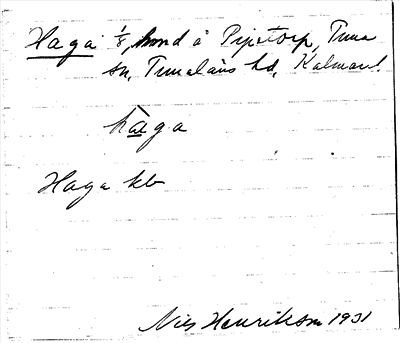 Haga 1/8, hmd å Pipetorp, Tuna
sn, Tunaläns hd, Kalmar l.
hàga
Haga kb
Nils Henrikson 1931